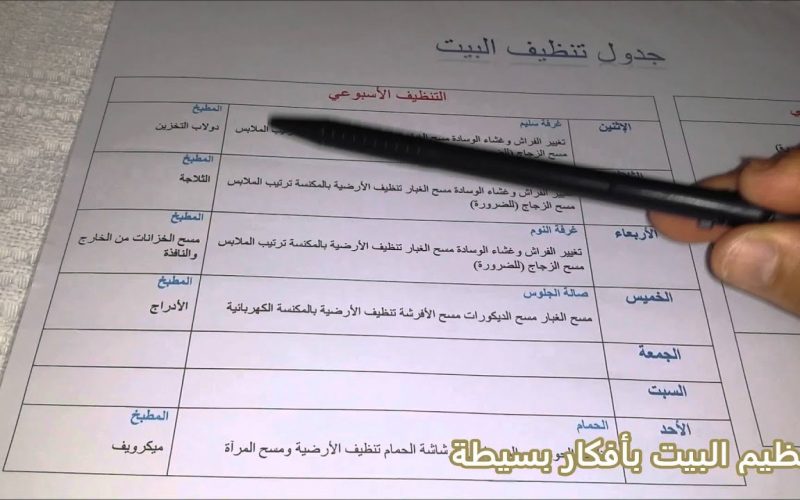 جدول تنظيف البيت
التنظيف الأسبوعي
الإثنين
غرفة سليم
تغيير الفراش وغشاء الوسادة مسح الغبار
الملابس
مسح الزجاج
المطبخ
دولاب التخزين
تغيير الفراش وغشاء الوسادة مسح الغبار تنظيف الأرضية بالمكنسة ترتيب الملابس
مسح الزجاج (للضرورة)
المطبخ
الثلاجة
الأربعاء
غرفة النوم
تغيير الفراش وغشاء الوسادة مسح الغبار تنظيف الأرضية بالمكنسة ترتيب الملابس
مسح الزجاج (للضرورة)
المطبخ
مسح الخزانات من الخارج
والنافذة
الخميس
صالة الجلوس
مسح الغبار مسح الديكورات مسح الأفرشة تنظيف الأرضية بالمكنسة الكهربائية
المطبخ
الأدراج
الجمعة
السبت
الأحد
الحمام
شاشة الحمام تنظيف الأرضية ومسح المرآة
المطبخ
ميكرويف
البيت بأفكار بسيطة